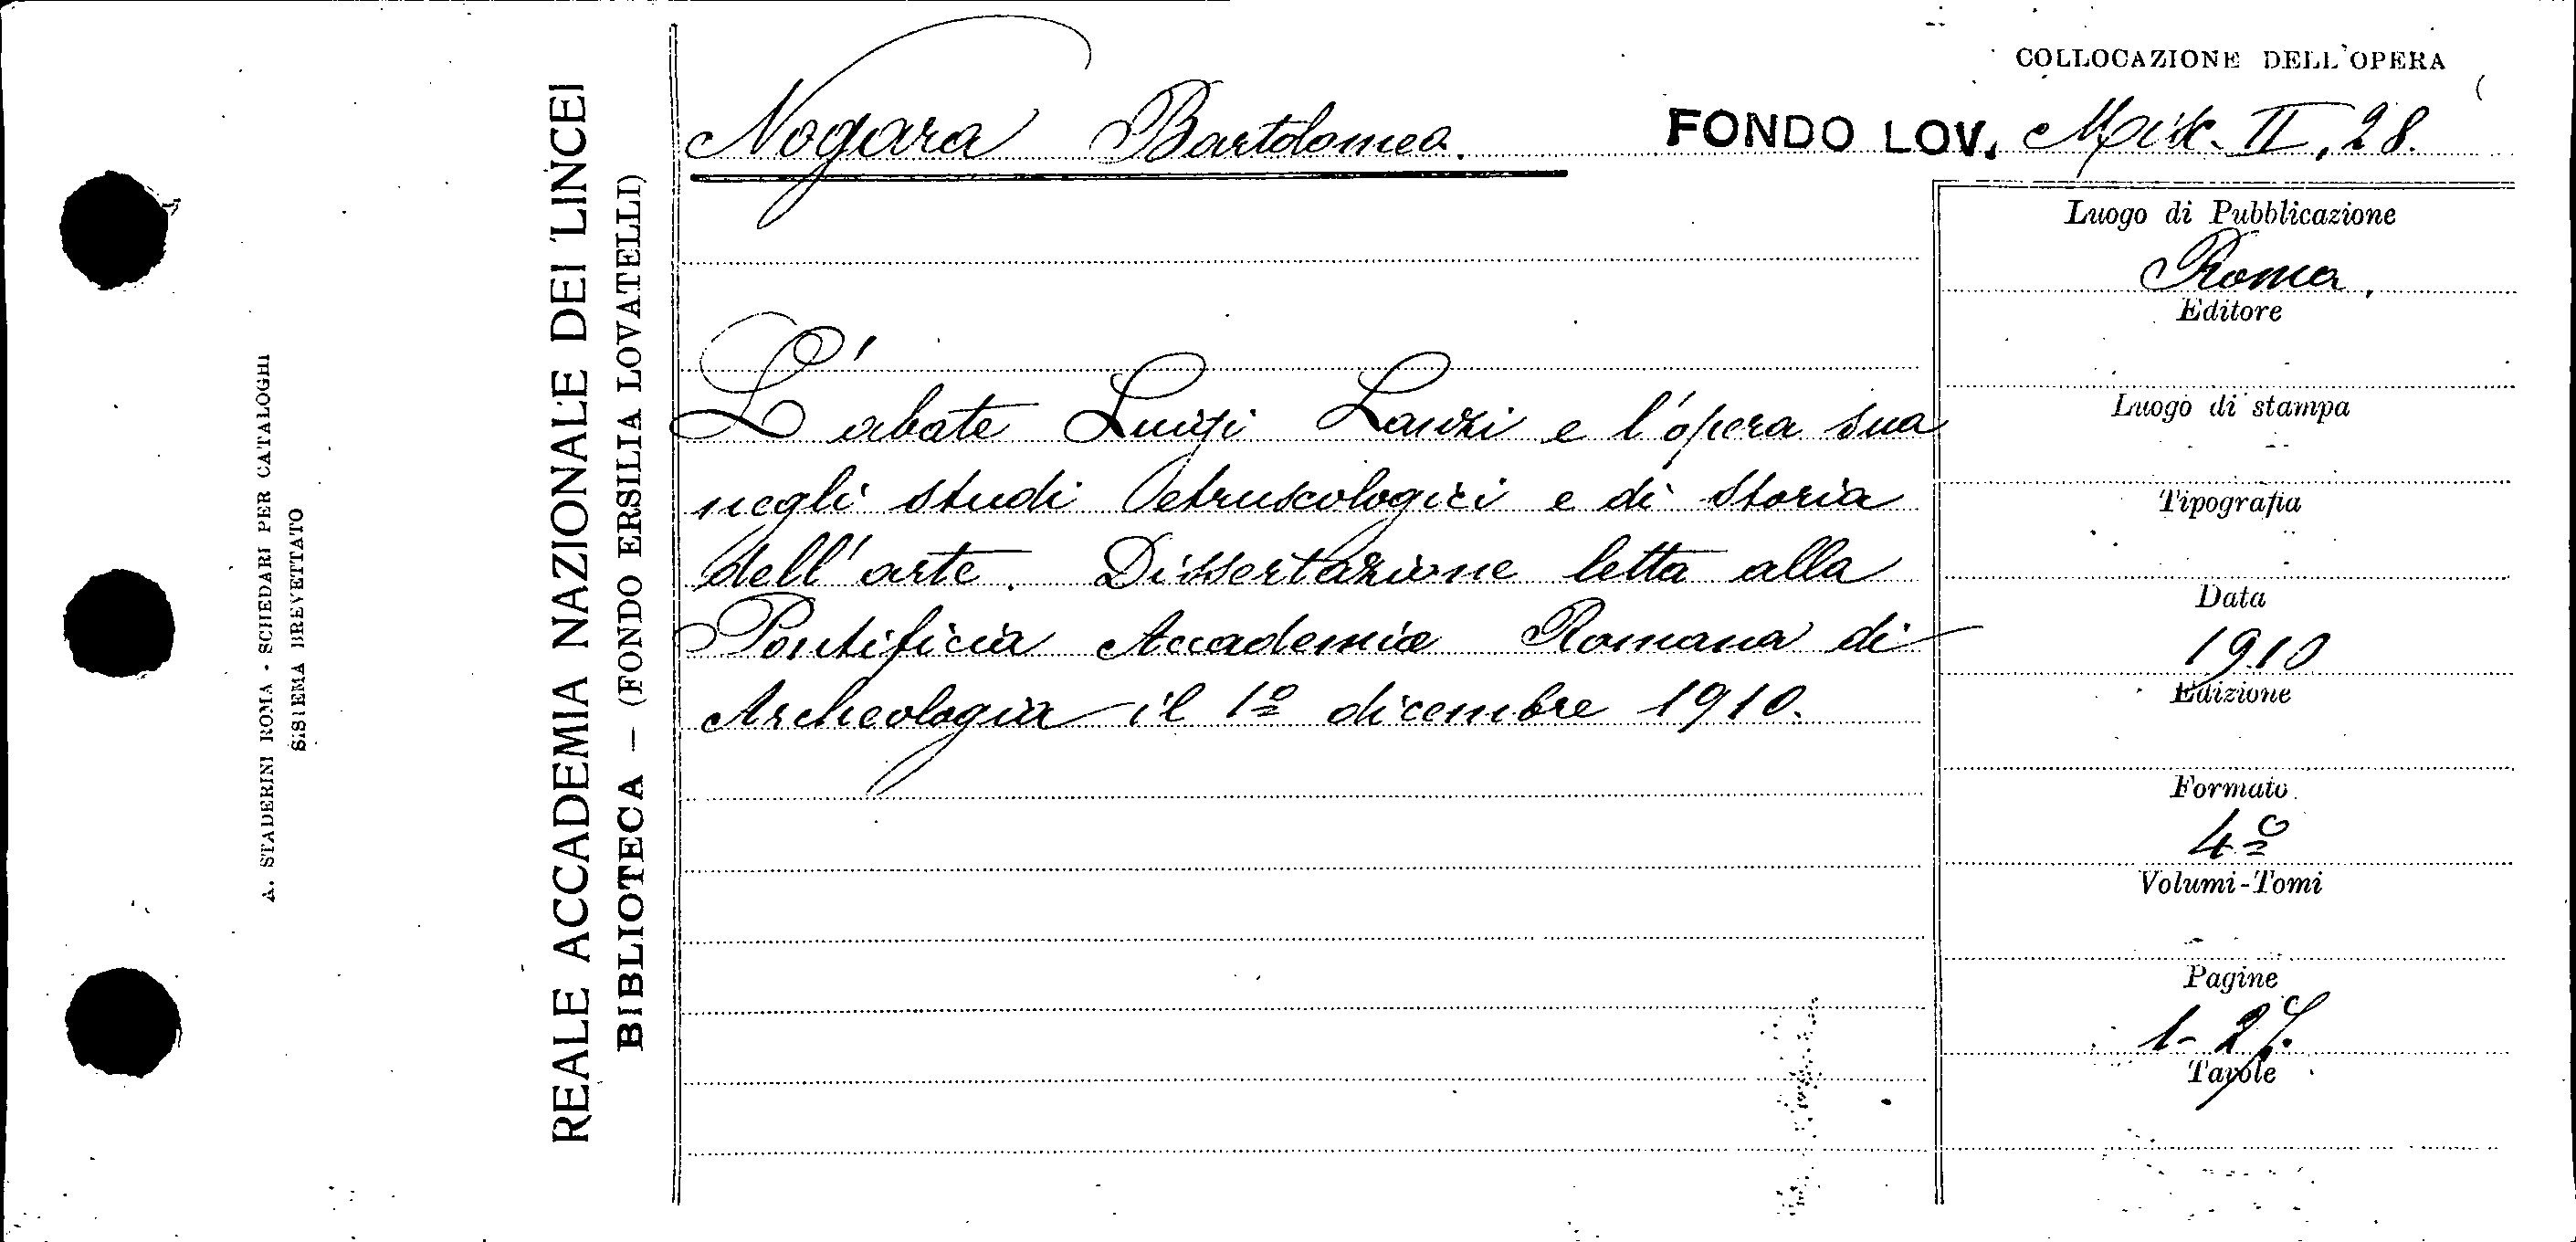 A. STADERINI ROMA - SCHEDARI PER CATALOGHI
SISTEMA BREVETTATO
REALE ACCADEMIA NAZIONALE DEI LINCEI
BIBLIOTECA — (FONDO ERSILIA LOVATELLI)
COLLOCAZIONE DELL'OPERA
Nogara Bartolomeo. FONDO LOV. Misc. II, 28.
L'abate Luigi Lanzi e l'opera sua
negli studi etruscologici e di storia
dell'arte. Dissertazione letta alla
Pontificia Accademia Romana di
Archeologia il 1º dicembre 1910.
Luogo di Pubblicazione
Roma.
Editore
Luogo di stampa
Tipografia
Data
1910
Edizione
Formato
4º
Volumi-Tomi
Pagine
1-27.
Tavole